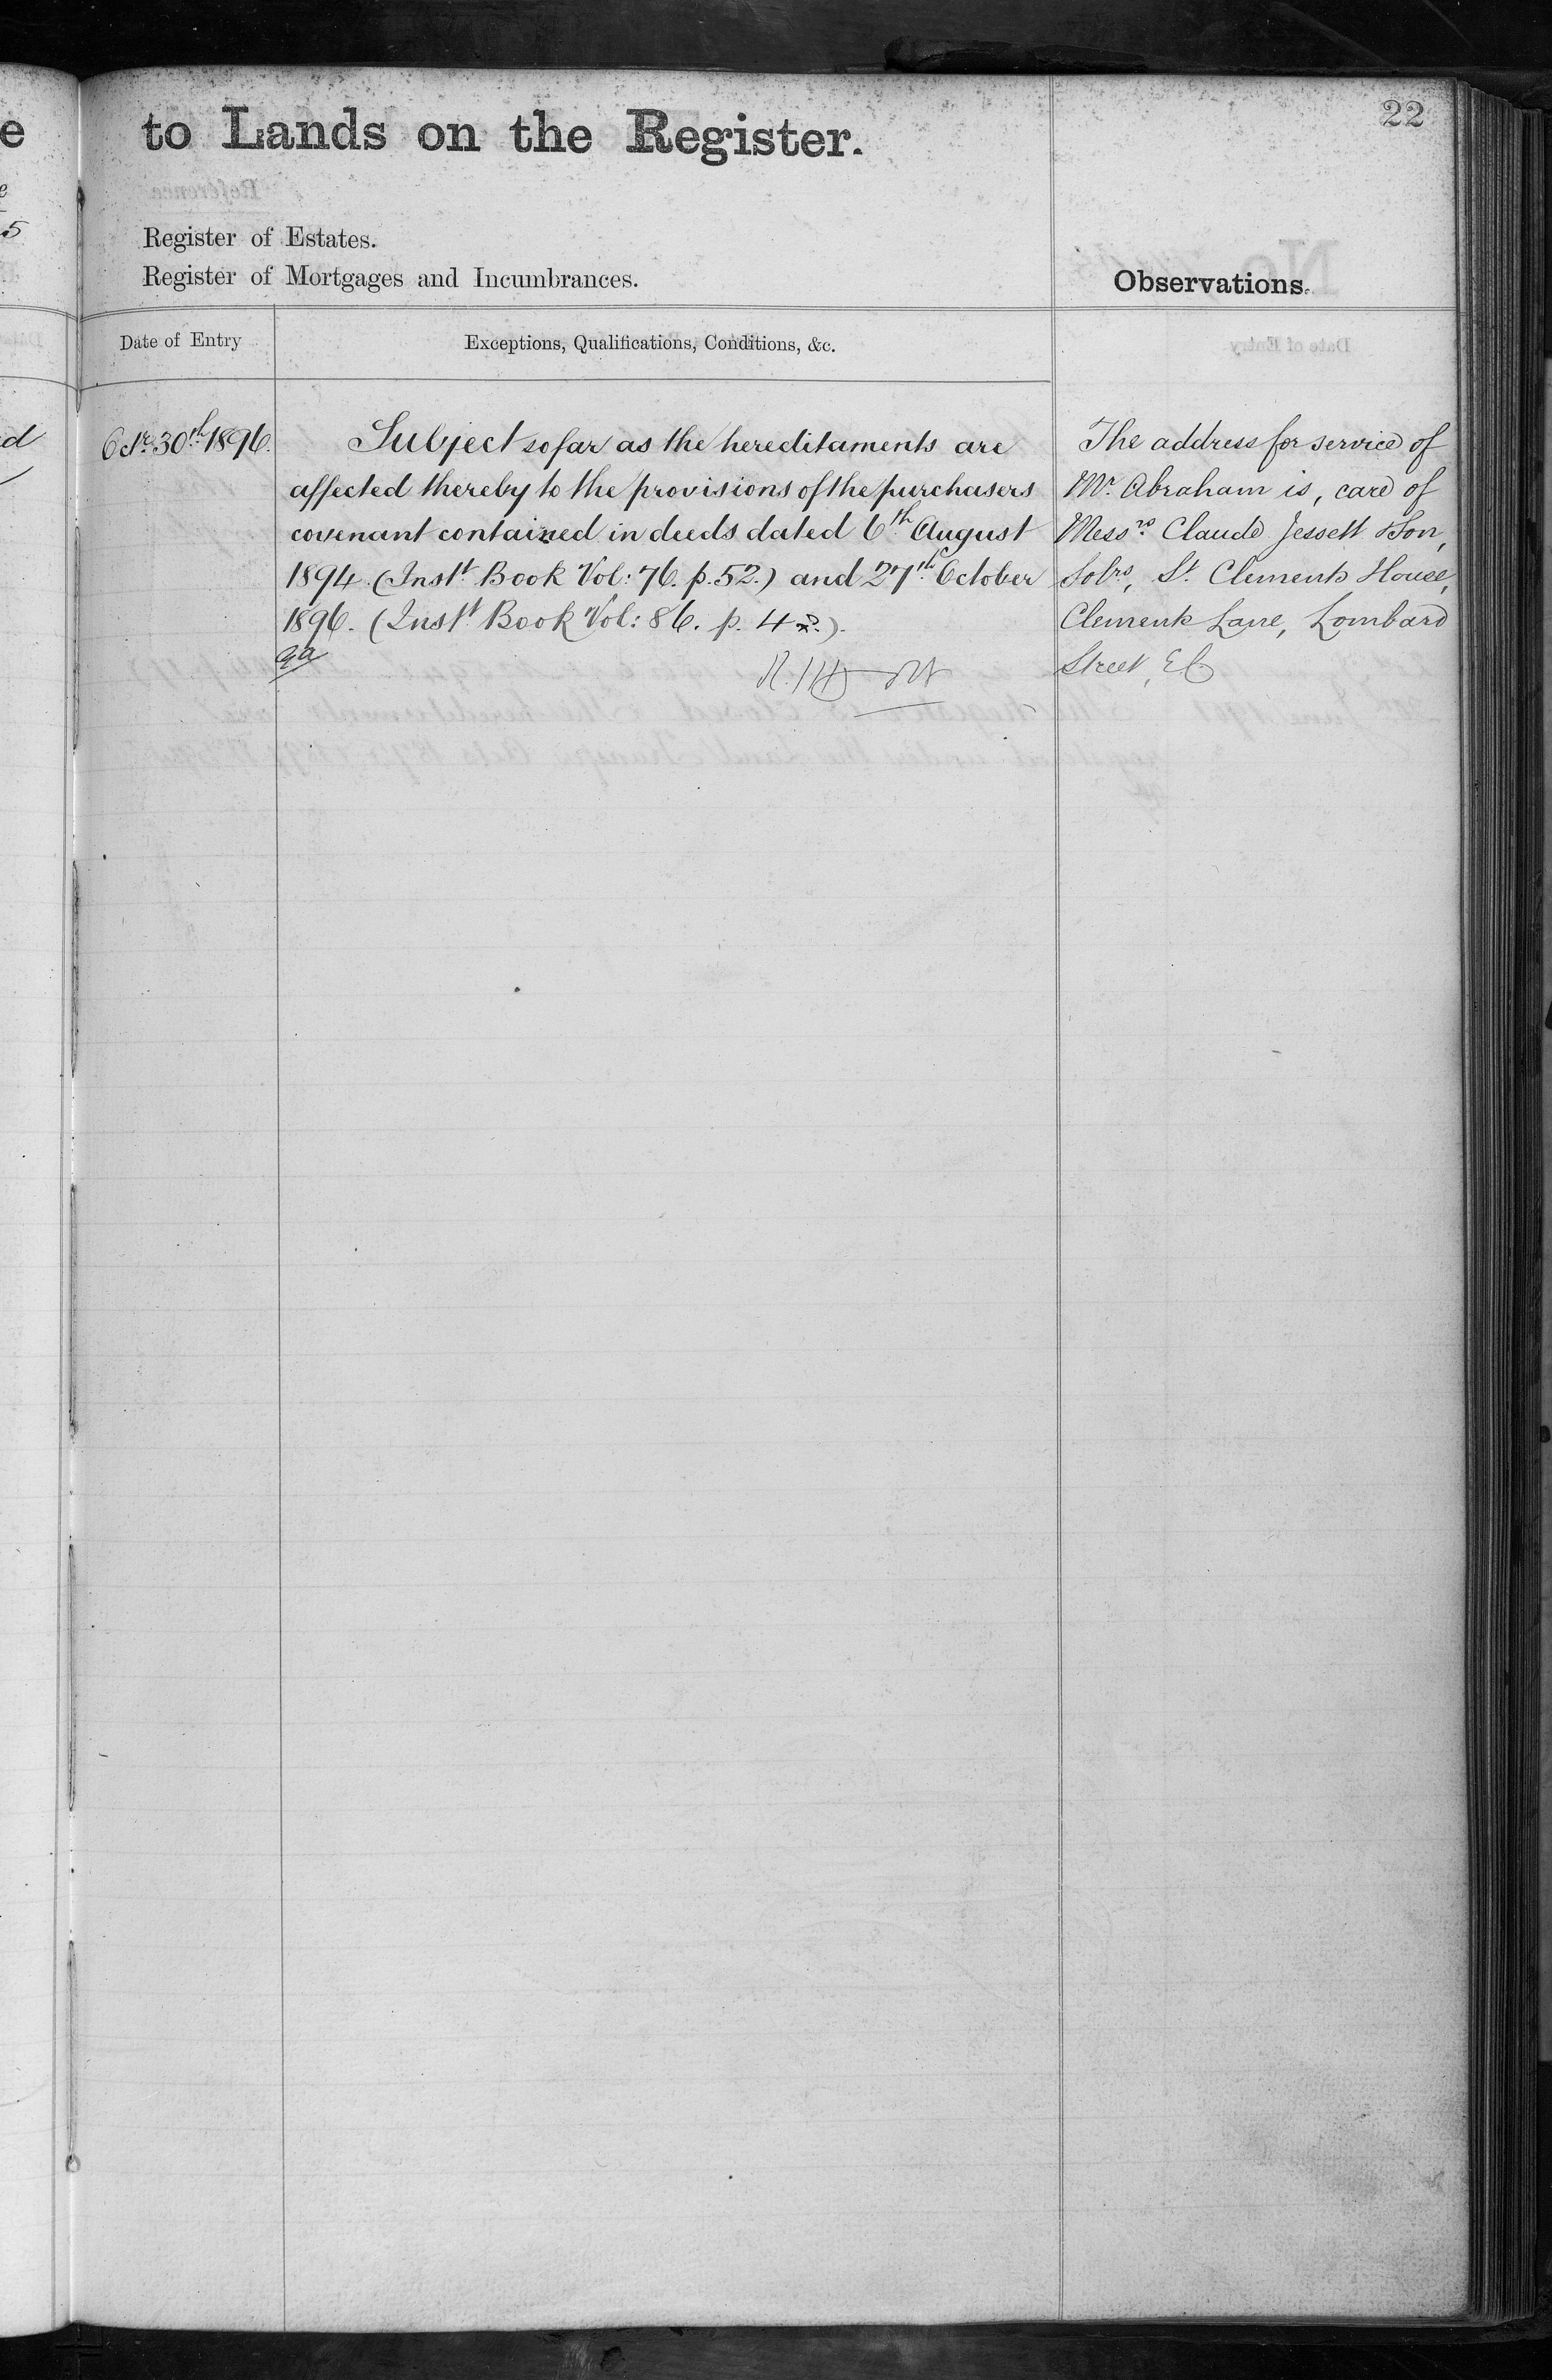 e
to Lands on the Register.
22
5
Register of Estates.
Register of Mortgages and Incumbrances.
Observations.
Date of Entry
Exceptions, Qualifications, Conditions, &c.
Octr. 30th 1896.
Subject so far as the hereditaments are
affected thereby to the provisions of the purchasers
covenant contained in deeds dated 6th August
1894 (Instt. Book Vol: 76. p. 52.) and 27th October
1896. (Instt Book Vol: 86. p. 4
The address for service of
Mr. Abraham is, care of
Messrs. Claude Jessett & Son,
Solrs, St. Clements House,
Clements Lane, Lombard
Street, E.C